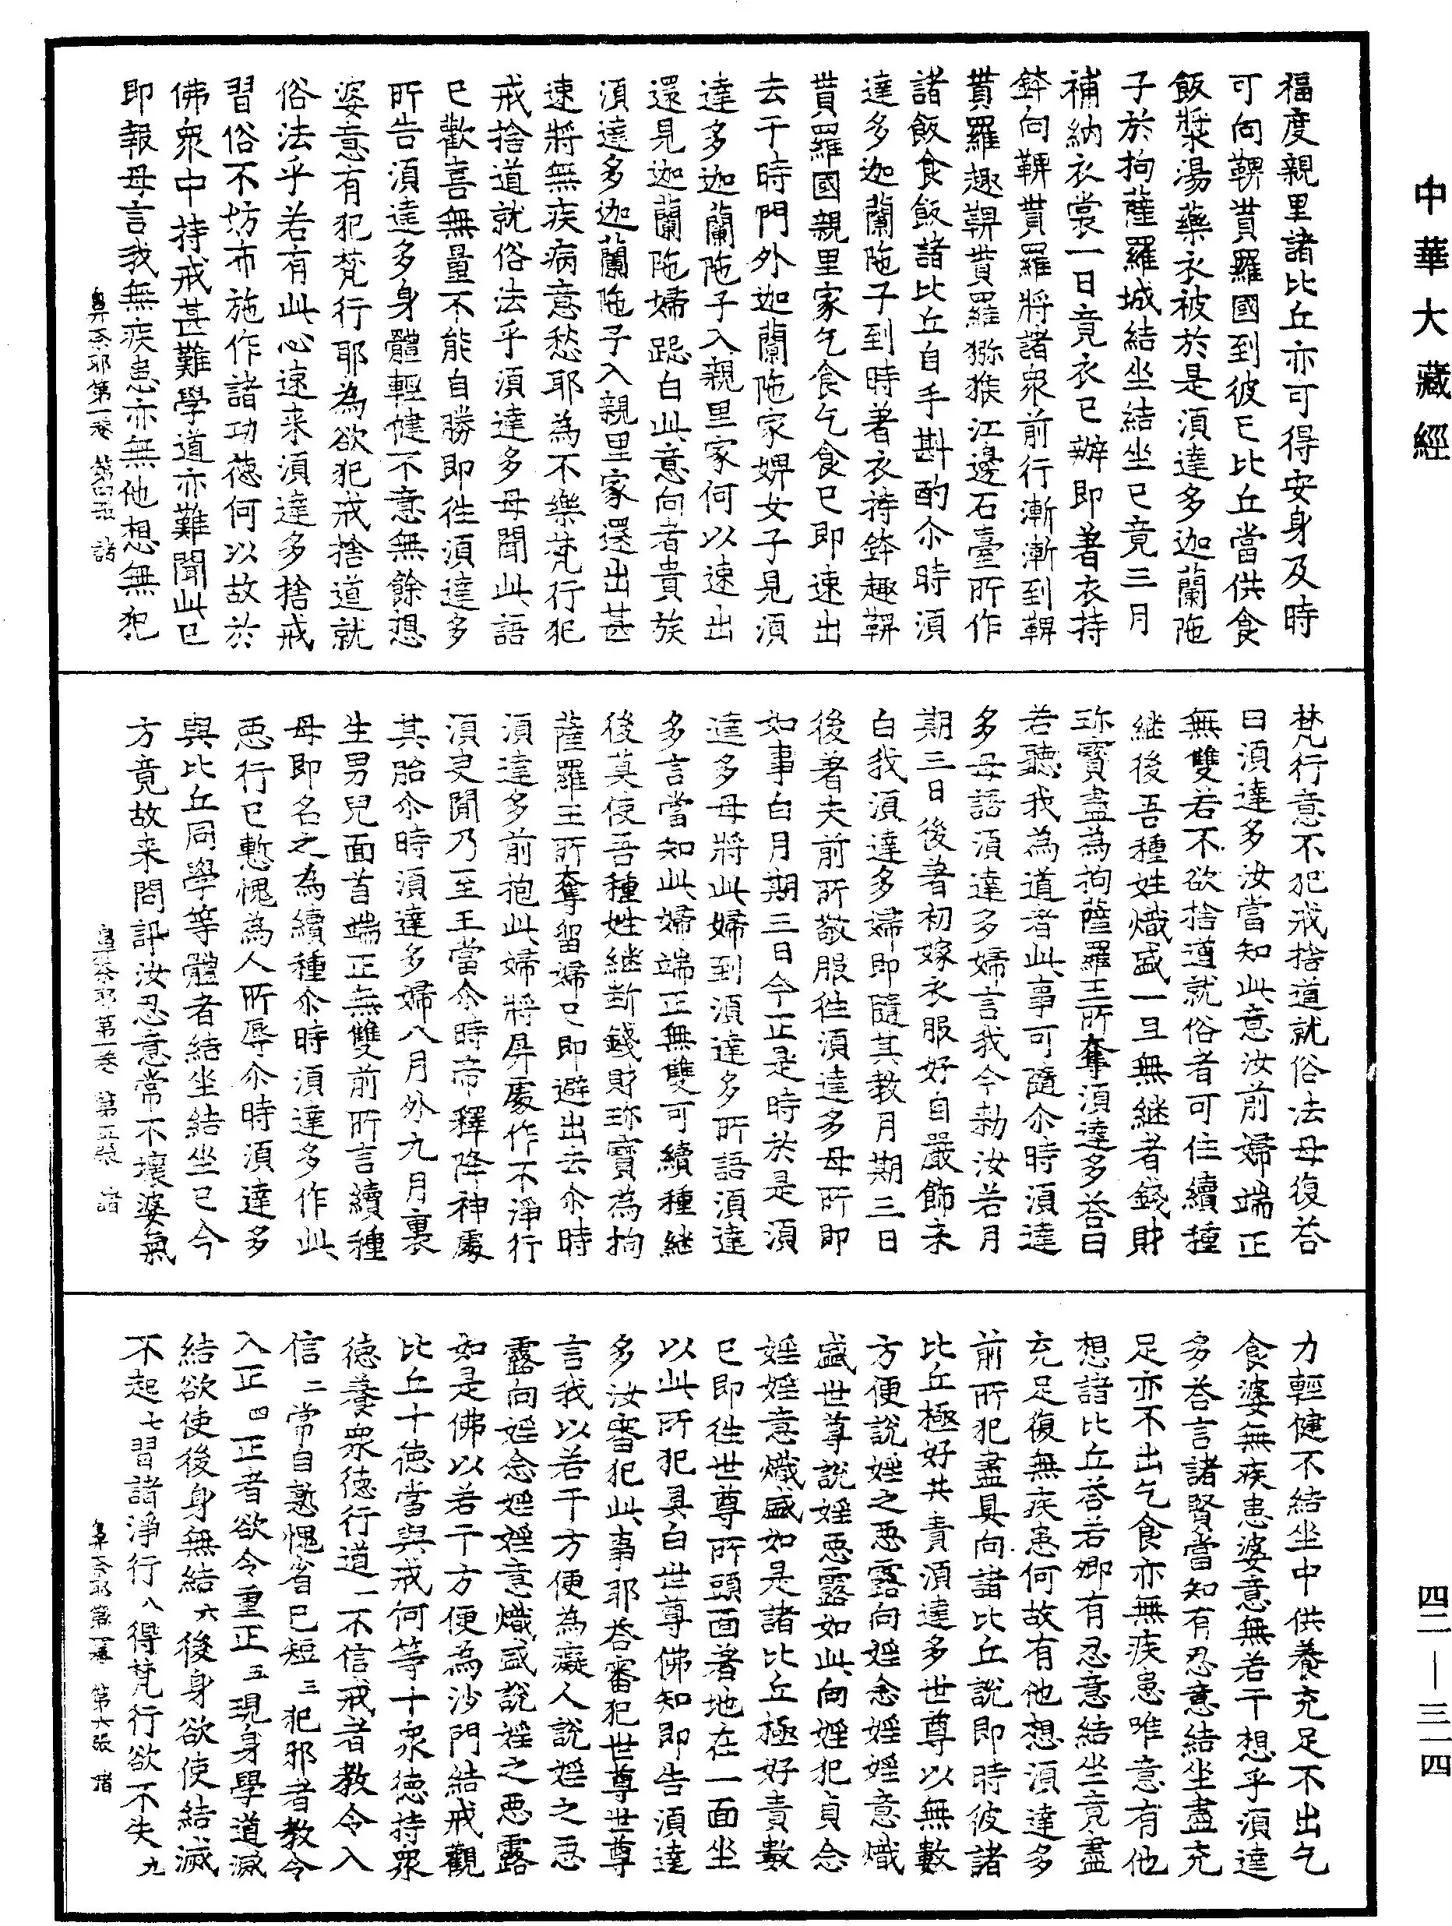 中華大藏經
福度親里諸比丘亦可得安身及時
可向鞞貰羅國到彼已比丘當供食
飯漿湯藥衣被於是須達多迦蘭陁
子於拘薩羅城結坐結坐已竟三月
補納衣裳一日竟衣已辦即著衣持
鉢向鞞貰羅將諸衆前行漸漸到鞞
貰羅趣鞞貰羅獼猴江邊石臺所作
諸飯食飯諸比丘自手斟酌尒時須
達多迦蘭陁子到時著衣持鉢趣鞞
貰羅國親里家乞食乞食已即速出
去于時門外迦蘭陁家婢女子見須
達多迦蘭陁子入親里家何以速出
還見迦蘭陁婦跽白此意向者貴族
須達多迦蘭陁子入親里家還出甚
速將無疾病意愁耶為不樂梵行犯
戒捨道就俗法乎須達多母聞此語
已歡喜無量不能自勝即徃須達多
所告須達多身體輕健不意無餘想
婆意有犯梵行耶為欲犯戒捨道就
俗法乎若有此心速来須達多捨戒
習俗不妨布施作諸功德何以故於
佛衆中持戒甚難學道亦難聞此已
即報母言我無疾患亦無他想無犯
鼻奈耶第一卷 第四張 諸
梵行意不犯戒捨道就俗法母復荅
曰須達多汝當知此意汝前婦端正
無雙若不欲捨道就俗者可住續種
継後吾種姓熾盛一旦無継者錢財
珎寳盡為拘薩羅王所奪須達多荅曰
若聽我為道者此事可隨尒時須達
多母語須達多婦言我今勑汝若月
期三日後著初嫁衣服好自嚴飾来
白我須達多婦即隨其教月期三日
後著夫前所敬服徃須達多母所即
如事白月期三日今正是時於是須
達多母將此婦到須達多所語須達
多言當知此婦端正無雙可續種継
後莫使吾種姓継斷錢財珎寳為拘
薩羅王所奪留婦已即避出去尒時
須達多前抱此婦將屏處作不淨行
須臾聞乃至王當尒時帝釋降神處
其胎尒時須達多婦八月外九月裏
生男兒面首端正無雙前所言續種
母即名之為續種尒時須達多作此
惡行已慙愧為人所辱尒時須達多
與比丘同學等體者結坐結坐已今
方竟故来問訊汝忍意常不壞婆氣
鼻奈耶第一卷 第五張 諸
力輕健不結坐中供養充足不出乞
食婆無疾患婆意無若干想乎須達
多荅言諸賢當知有忍意結坐盡充
足亦不出乞食亦無疾患唯意有他
想諸比丘荅若卿有忍意結坐竟盡
充足復無疾患何故有他想須達多
前所犯盡具向諸比丘說即時彼諸
比丘極好共責須達多世尊以無數
方便說婬之惡露向婬念婬婬意熾
盛世尊說婬惡露如此向婬犯貞念
婬婬意熾盛如是諸比丘極好責數
已即徃世尊所頭面著地在一面坐
以此所犯具白世尊佛知即告須達
多汝審犯此事耶荅審犯世尊世尊
言我以若干方便為癡人說婬之惡
露向婬念婬婬意熾盛說婬之惡露
如是佛以若干方便為沙門結戒觀
比丘十德當與戒何等十衆德持衆
德養衆德行道一不信戒者教令入
信二常自慙愧省已短三犯邪者教令
入正四正者欲令重正五現身學道滅
結欲使後身無結六後身欲使結滅
不起七習諸淨行八得梵行欲不失九
鼻奈耶第一卷 第六張 諸
四二—三一四